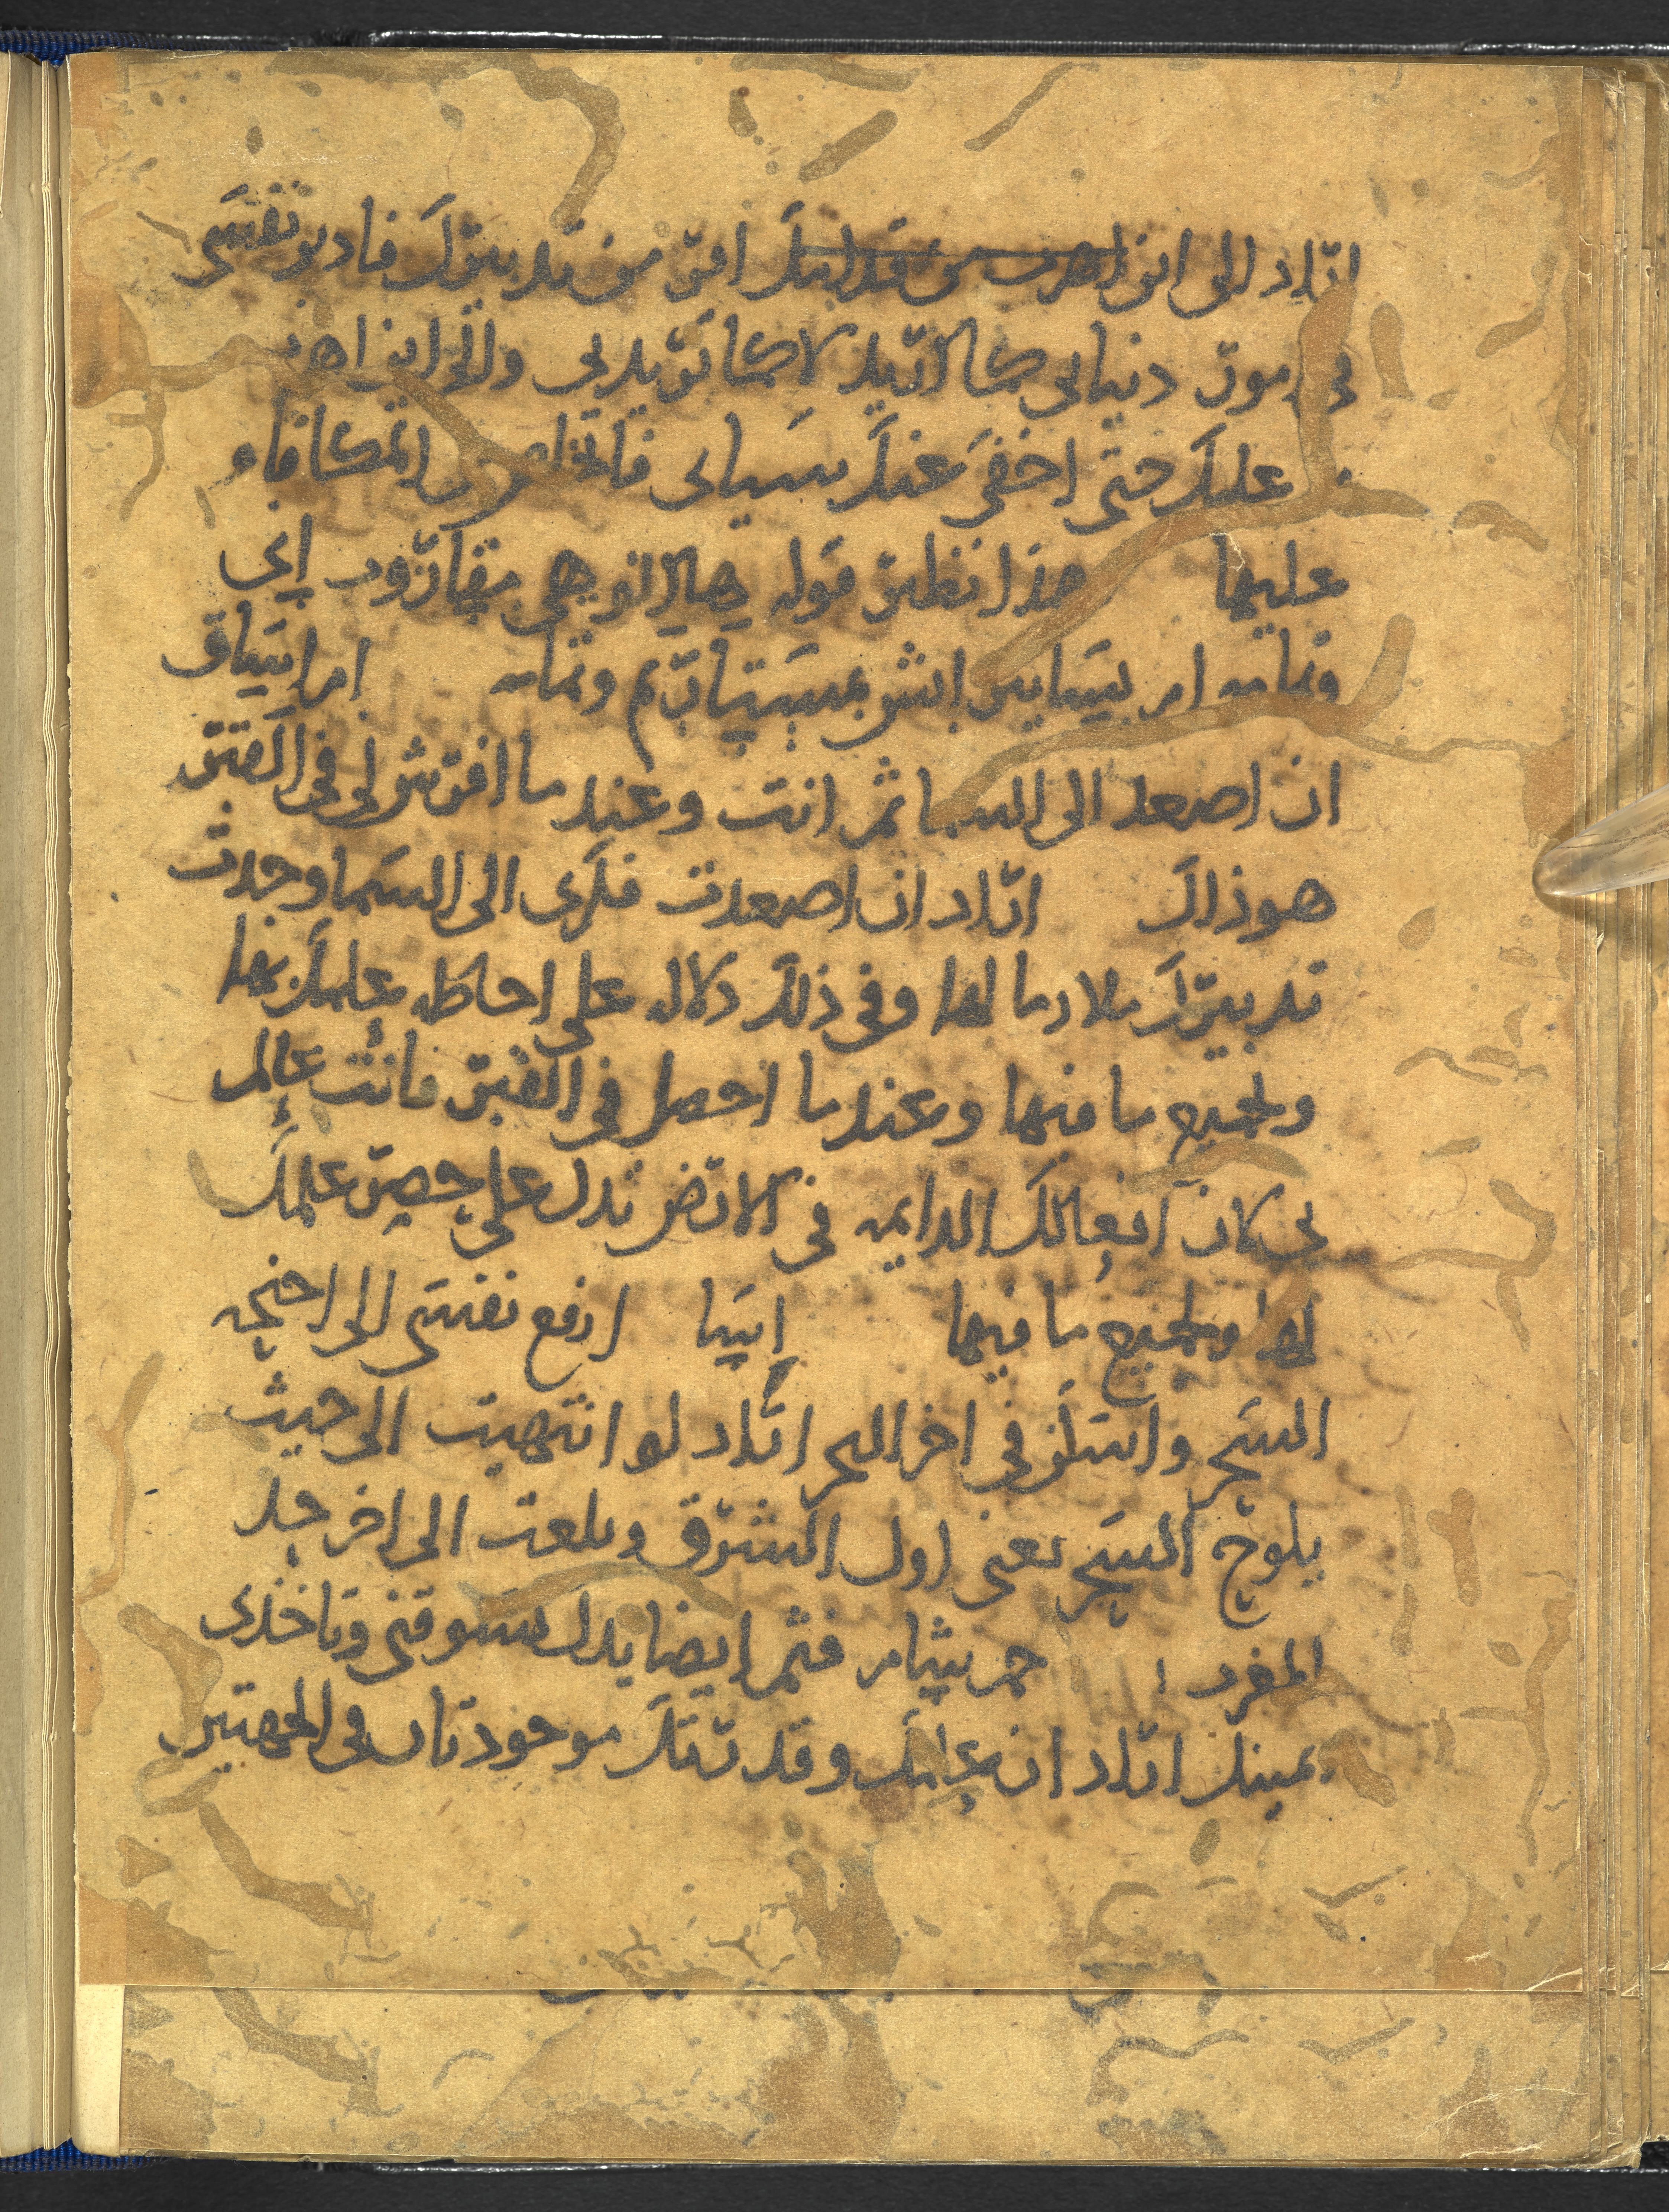 اراد الى اين اهرب من قدامك افر من تدبيرك فادبر نفسي
في امور دنيايي كما اريد لا كما تريد بي والى اين اهرب
عليك حتى اخفي عنك سياتي فاتخلص من المكافاه
عليها هذا نظير قوله هالا الوهي مقاروب اني
وتمامه ام يساتير ايش بمستاريم وتمامه ام اساق
ان اصعد الى السما ثم انت وعندما افترش لي في القبر
هوذاك اراد ان اصعدت فكري الى السما وجدت
تدبيرك ملاوما لها وفي ذلك دلاله على احاطه علمك بها
وبجميع ما فيها وعندما احصل في القبر فانت عالم
بي لان افعالك الدايمه في الارض تدل على حصر علمك
لها وبجميع ما فيها اسا ارفع نفسي الى اجنحه
السحر واسكن في اخر البحر اراد لو انتهيت الى حيث
يلوح السحر يعني اول الشرق وبلغت الى اخر حد
المغرب جم شام فثم ايضا يدك تسوقني وتاخذني
يمينك اراد ان علمك وقدرتك موجودتان في الجهتين